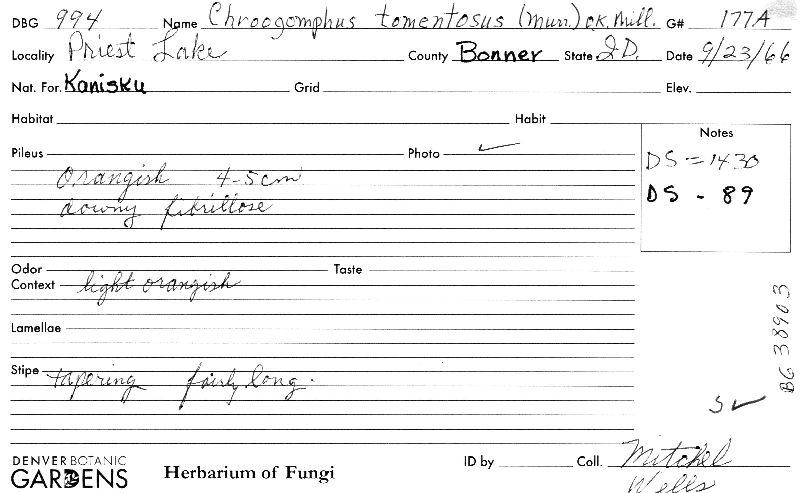 DBG 994 Name Chroogomphus tomentosus (Murr.) O.K. Mill. G# 177A
Locality Priest Lake County Bonner State ID. Date 9/23/66
Nat. For. Kanisku Grid Elev.
Habitat Habit
Notes
Pileus Photo ✓
DS = 1430
orangish 4-5cm
DS - 89
downy fibrillose
Odor Taste
Context light orangish
BG 38903
Lamellae
Stipe tapering fairly long.
S ✓
DENVER BOTANIC GARDENS
Herbarium of Fungi
ID by Coll. Mitchel
Wells